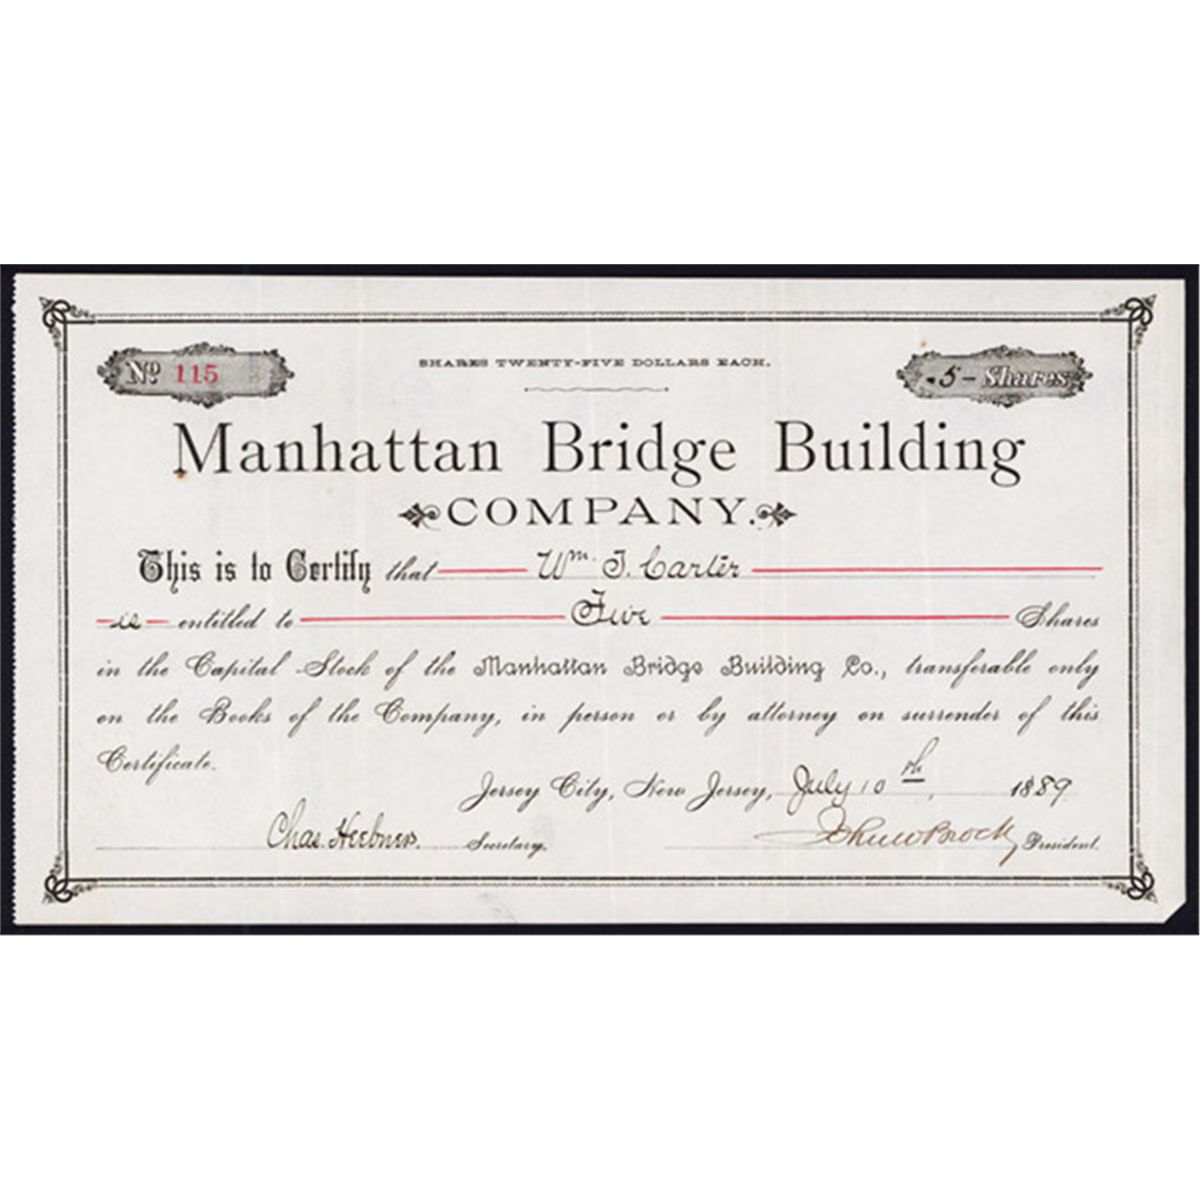 Nº 115
SHARES TWENTY-FIVE DOLLARS EACH.
-5- Shares
Manhattan Bridge Building
COMPANY.
This is to Certify that Wm. T. Carter
is entitled to Five Shares
in the Capital Stock of the Manhattan Bridge Building Co., transferable only
on the Books of the Company, in person or by attorney on surrender of this
Certificate.
Jersey City, New Jersey, July 10th, 1889
Chas. Heebner. Secretary. John W Brock President.